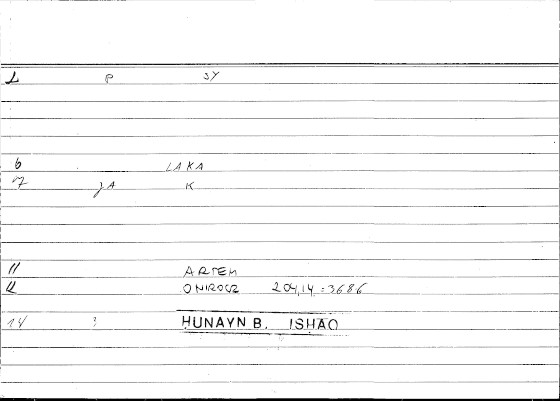 1 P SY
6 LAKA
7 JA K
11 ARTEM
12 ONIROCR 204,14 = 3686
14 : HUNAYN B. ISHAQ